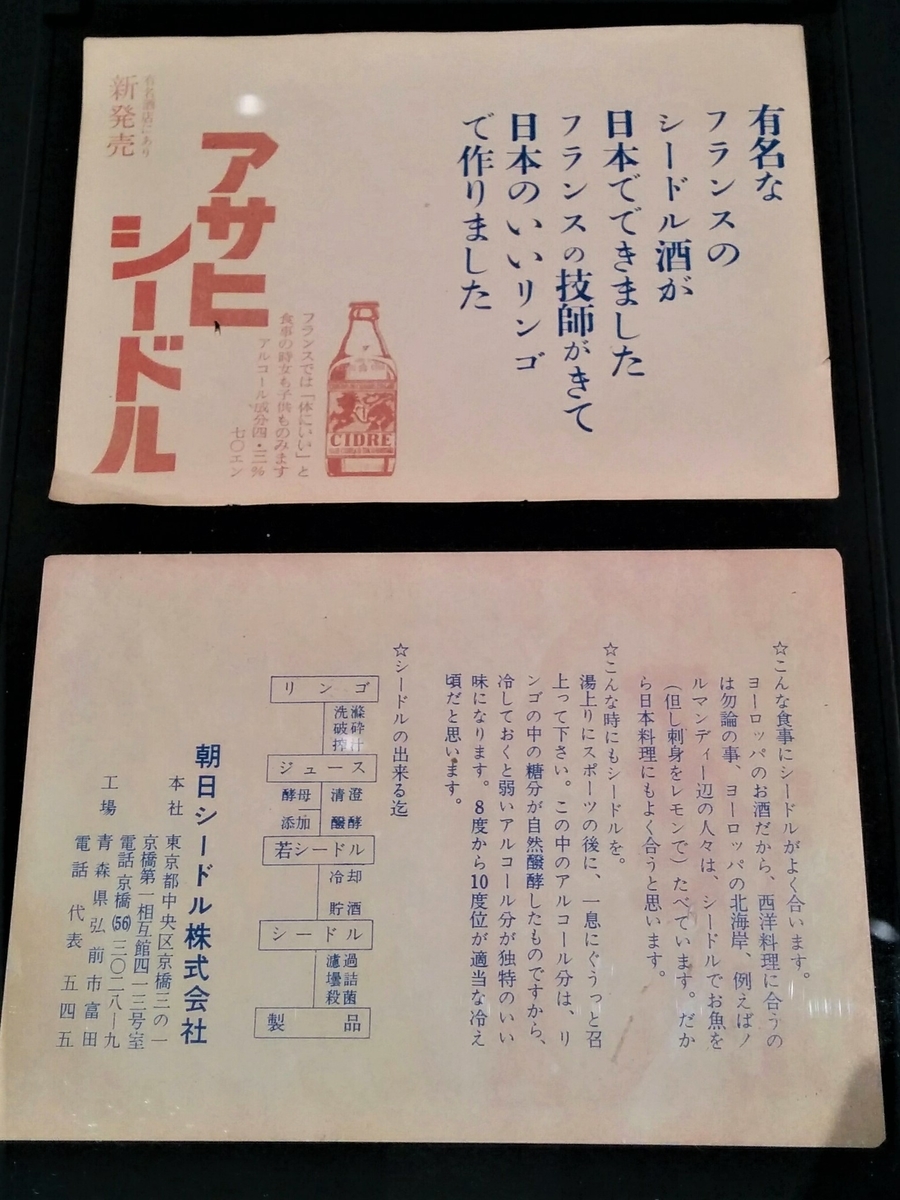 有名な
フランスの
シードル酒が
日本でできました
フランスの技師がきて
日本のいいリンゴ
で作りました
CIDRE
フランスでは「体にいい」と
食事の時女も子供ものみます
アルコール成分四・三%
七〇エン
アサヒ
シードル
有名酒店にあり
新発売
☆こんな食事にシードルがよく合います。
ヨーロッパのお酒だから、西洋料理に合うの
は勿論の事、ヨーロッパの北海岸、例えばノ
ルマンディー辺の人々は、シードルでお魚を
(但し刺身をレモンで)たべています。だか
ら日本料理にもよく合うと思います。
☆こんな時にもシードルを。
湯上りにスポーツの後に、一息にぐうっと召
上って下さい。この中のアルコール分は、リ
ンゴの中の糖分が自然醱酵したものですから、
冷しておくと弱いアルコール分が独特のいい
味になります。8度から10度位が適当な冷え
頃だと思います。
☆シードルの出来る迄
リンゴ
洗滌
破砕
搾汁
ジュース
酵母添加
清澄
醱酵
若シードル
冷却
貯酒
シードル
濾過
壜詰
殺菌
製品
朝日シードル株式会社
本社 東京都中央区京橋三の一
京橋第一相互館四一三号室
電話京橋(56)三〇二八―九
工場 青森県弘前市富田
電話 代表 五四五